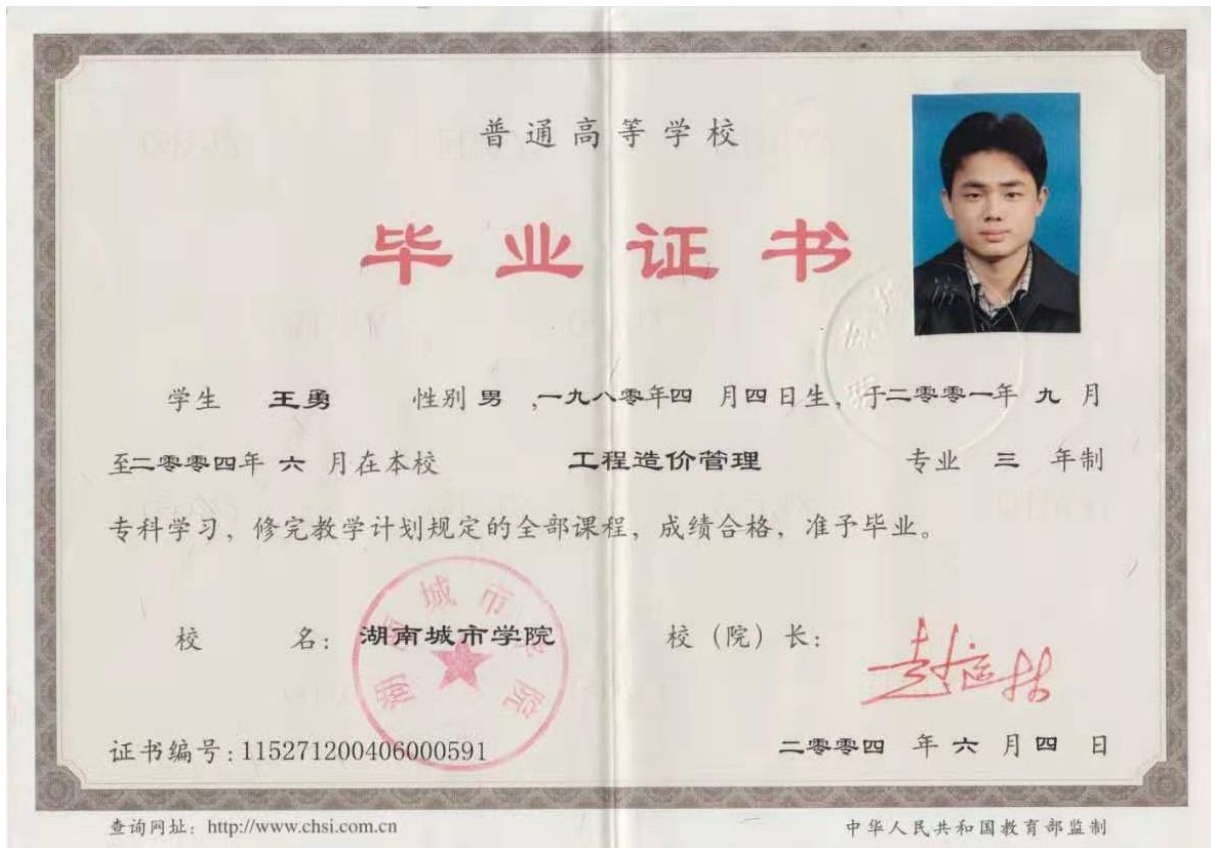 普通高等学校
毕业证书
学生 王勇 性别 男 ,一九八零年四 月四日生，于二零零一年 九 月
至二零零四年 六 月在本校 工程造价管理 专业 三 年制
专科学习，修完教学计划规定的全部课程，成绩合格，准予毕业。
校 名： 湖南城市学院 校（院）长：
湖南城市学院
证书编号：115271200406000591 二零零四 年 六 月 四 日
查询网址：http://www.chsi.com.cn 中华人民共和国教育部监制